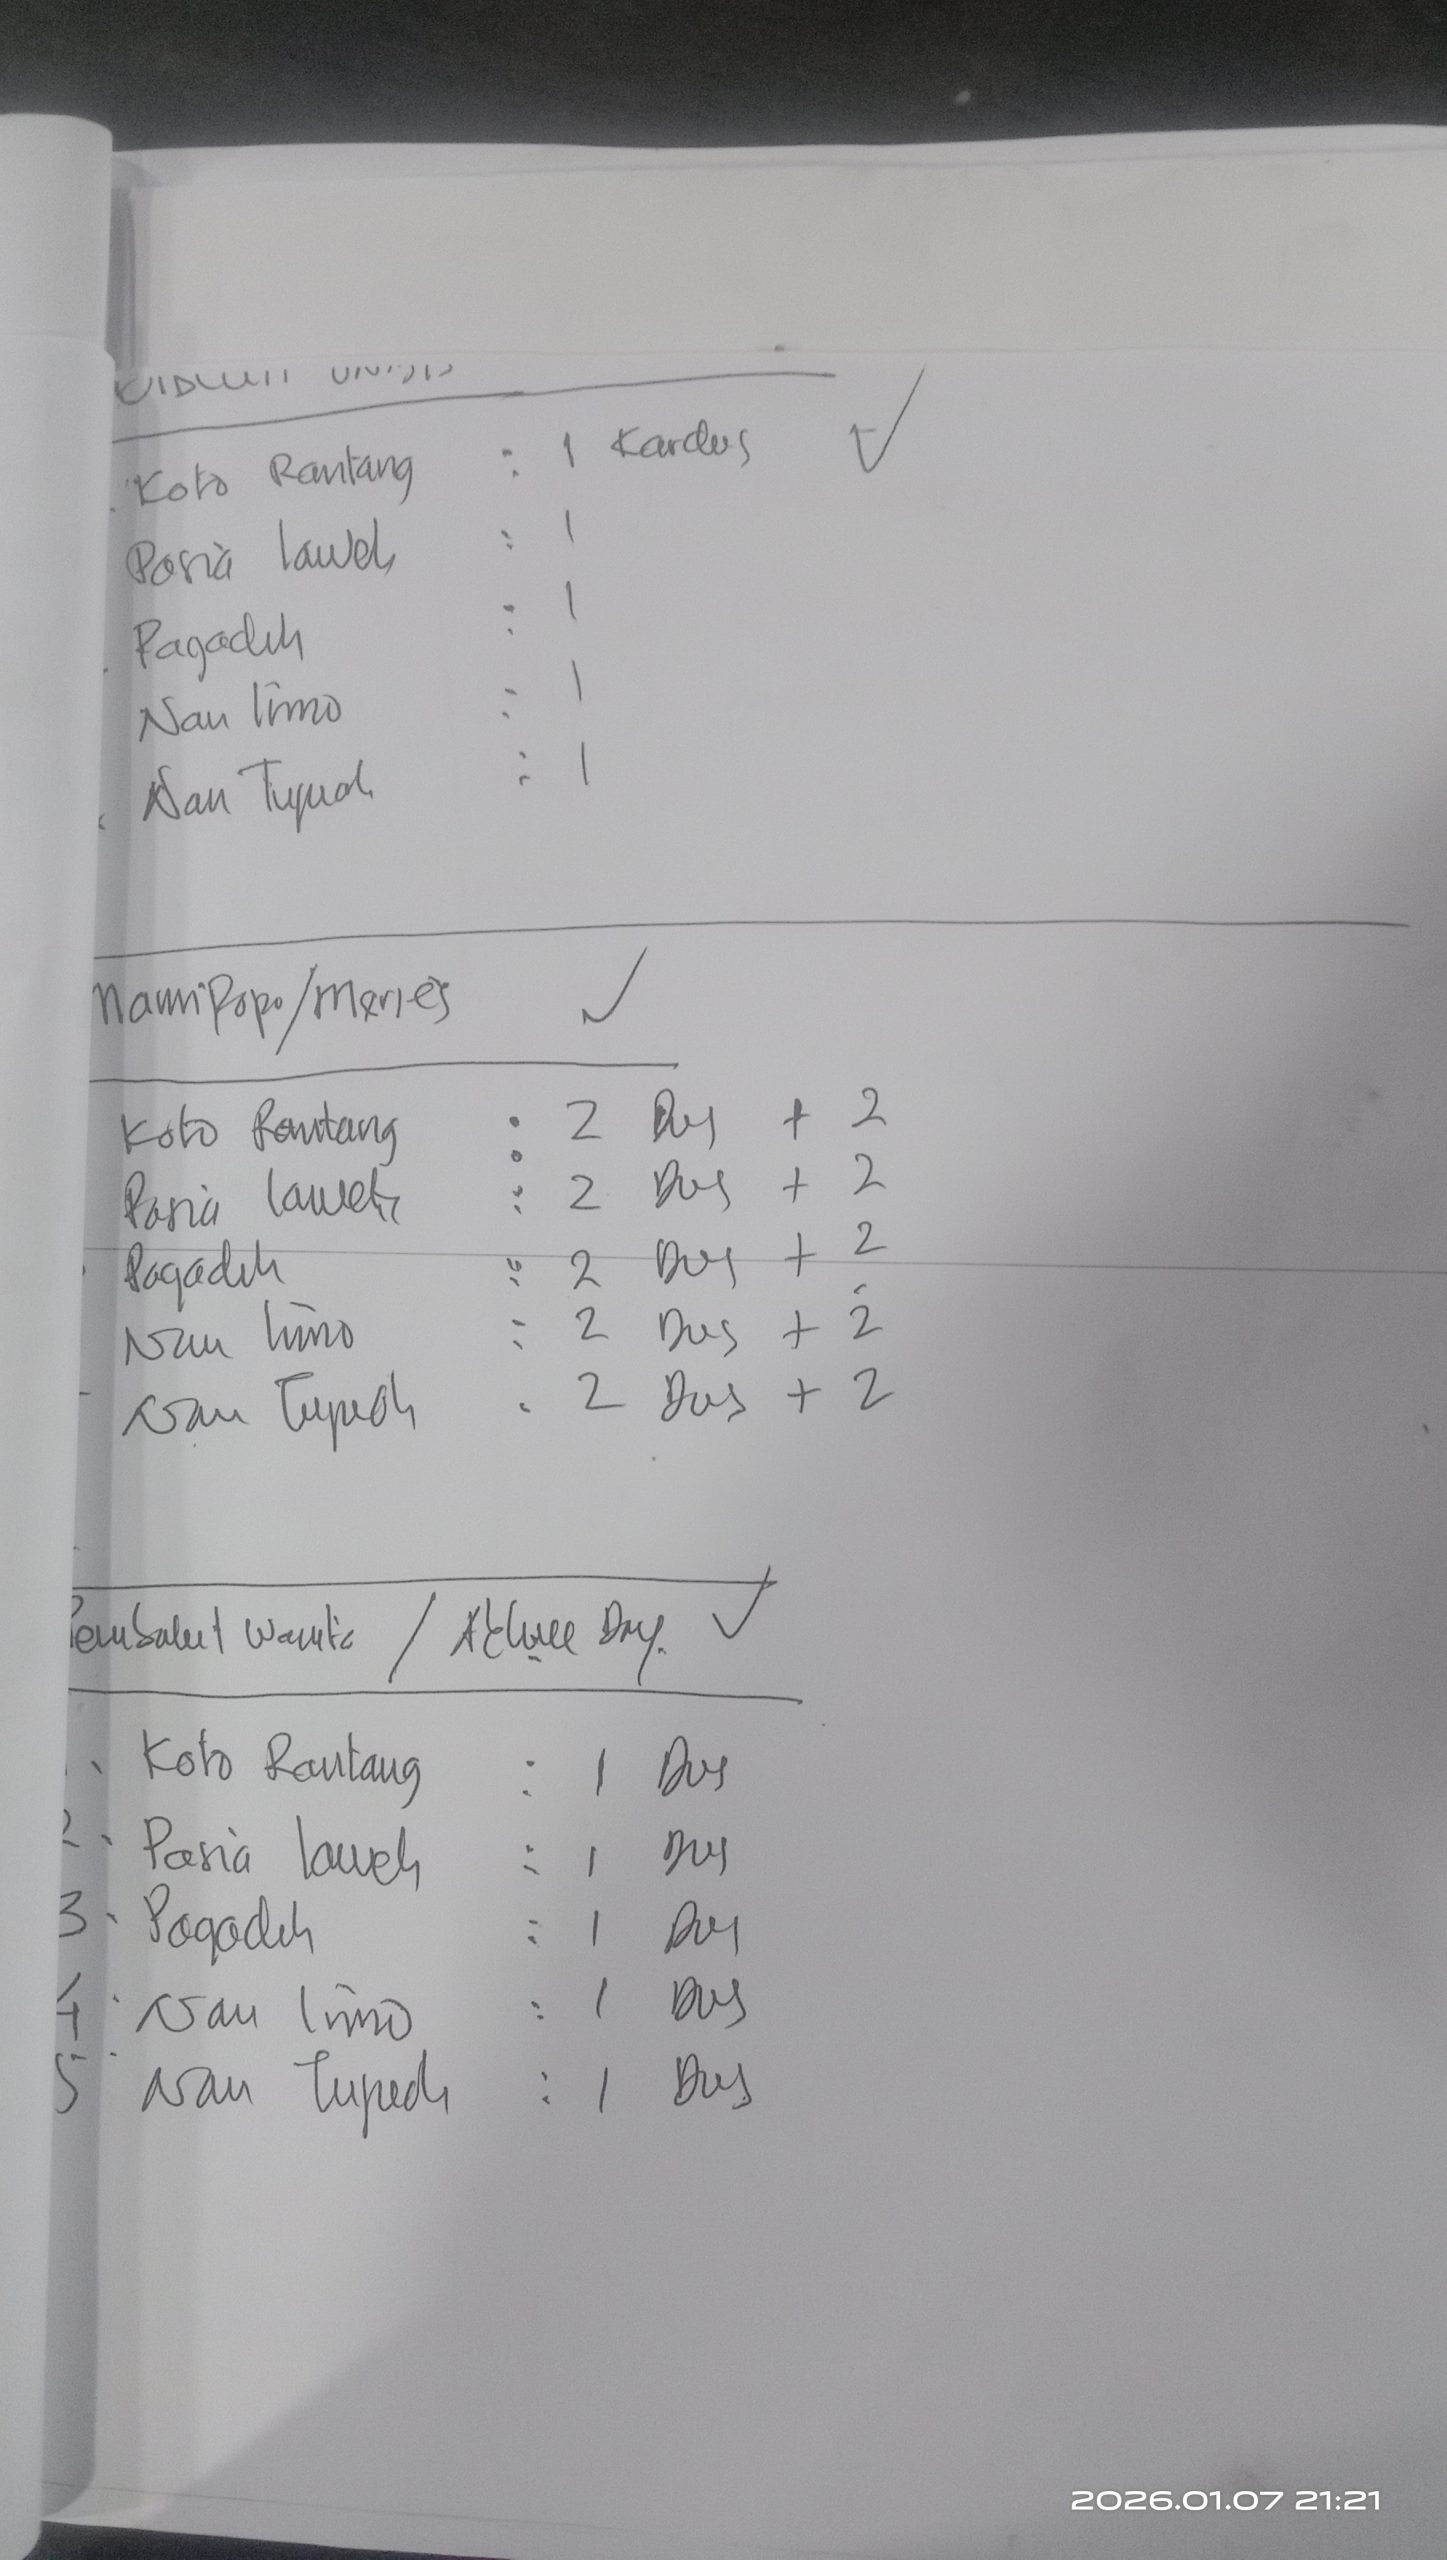 Koto Rantang : 1 Kardus
Pasia laweh : 1
Pagadih : 1
Nan limo : 1
Nan Tujuah : 1
MamiPoko/Merries
Koto Rantang : 2 Dus + 2
Pasia laweh : 2 Dus + 2
Pagadih : 2 Dus + 2
Nan limo : 2 Dus + 2
Nan Tujuah : 2 Dus + 2
Pembalut Wanita /
1. Koto Rantang : 1 Dus
2. Pasia laweh : 1 Dus
3. Pagadih : 1 Dus
4. Nan limo : 1 Dus
5 Nan Tujuah : 1 Dus
2026.01.07 21:21